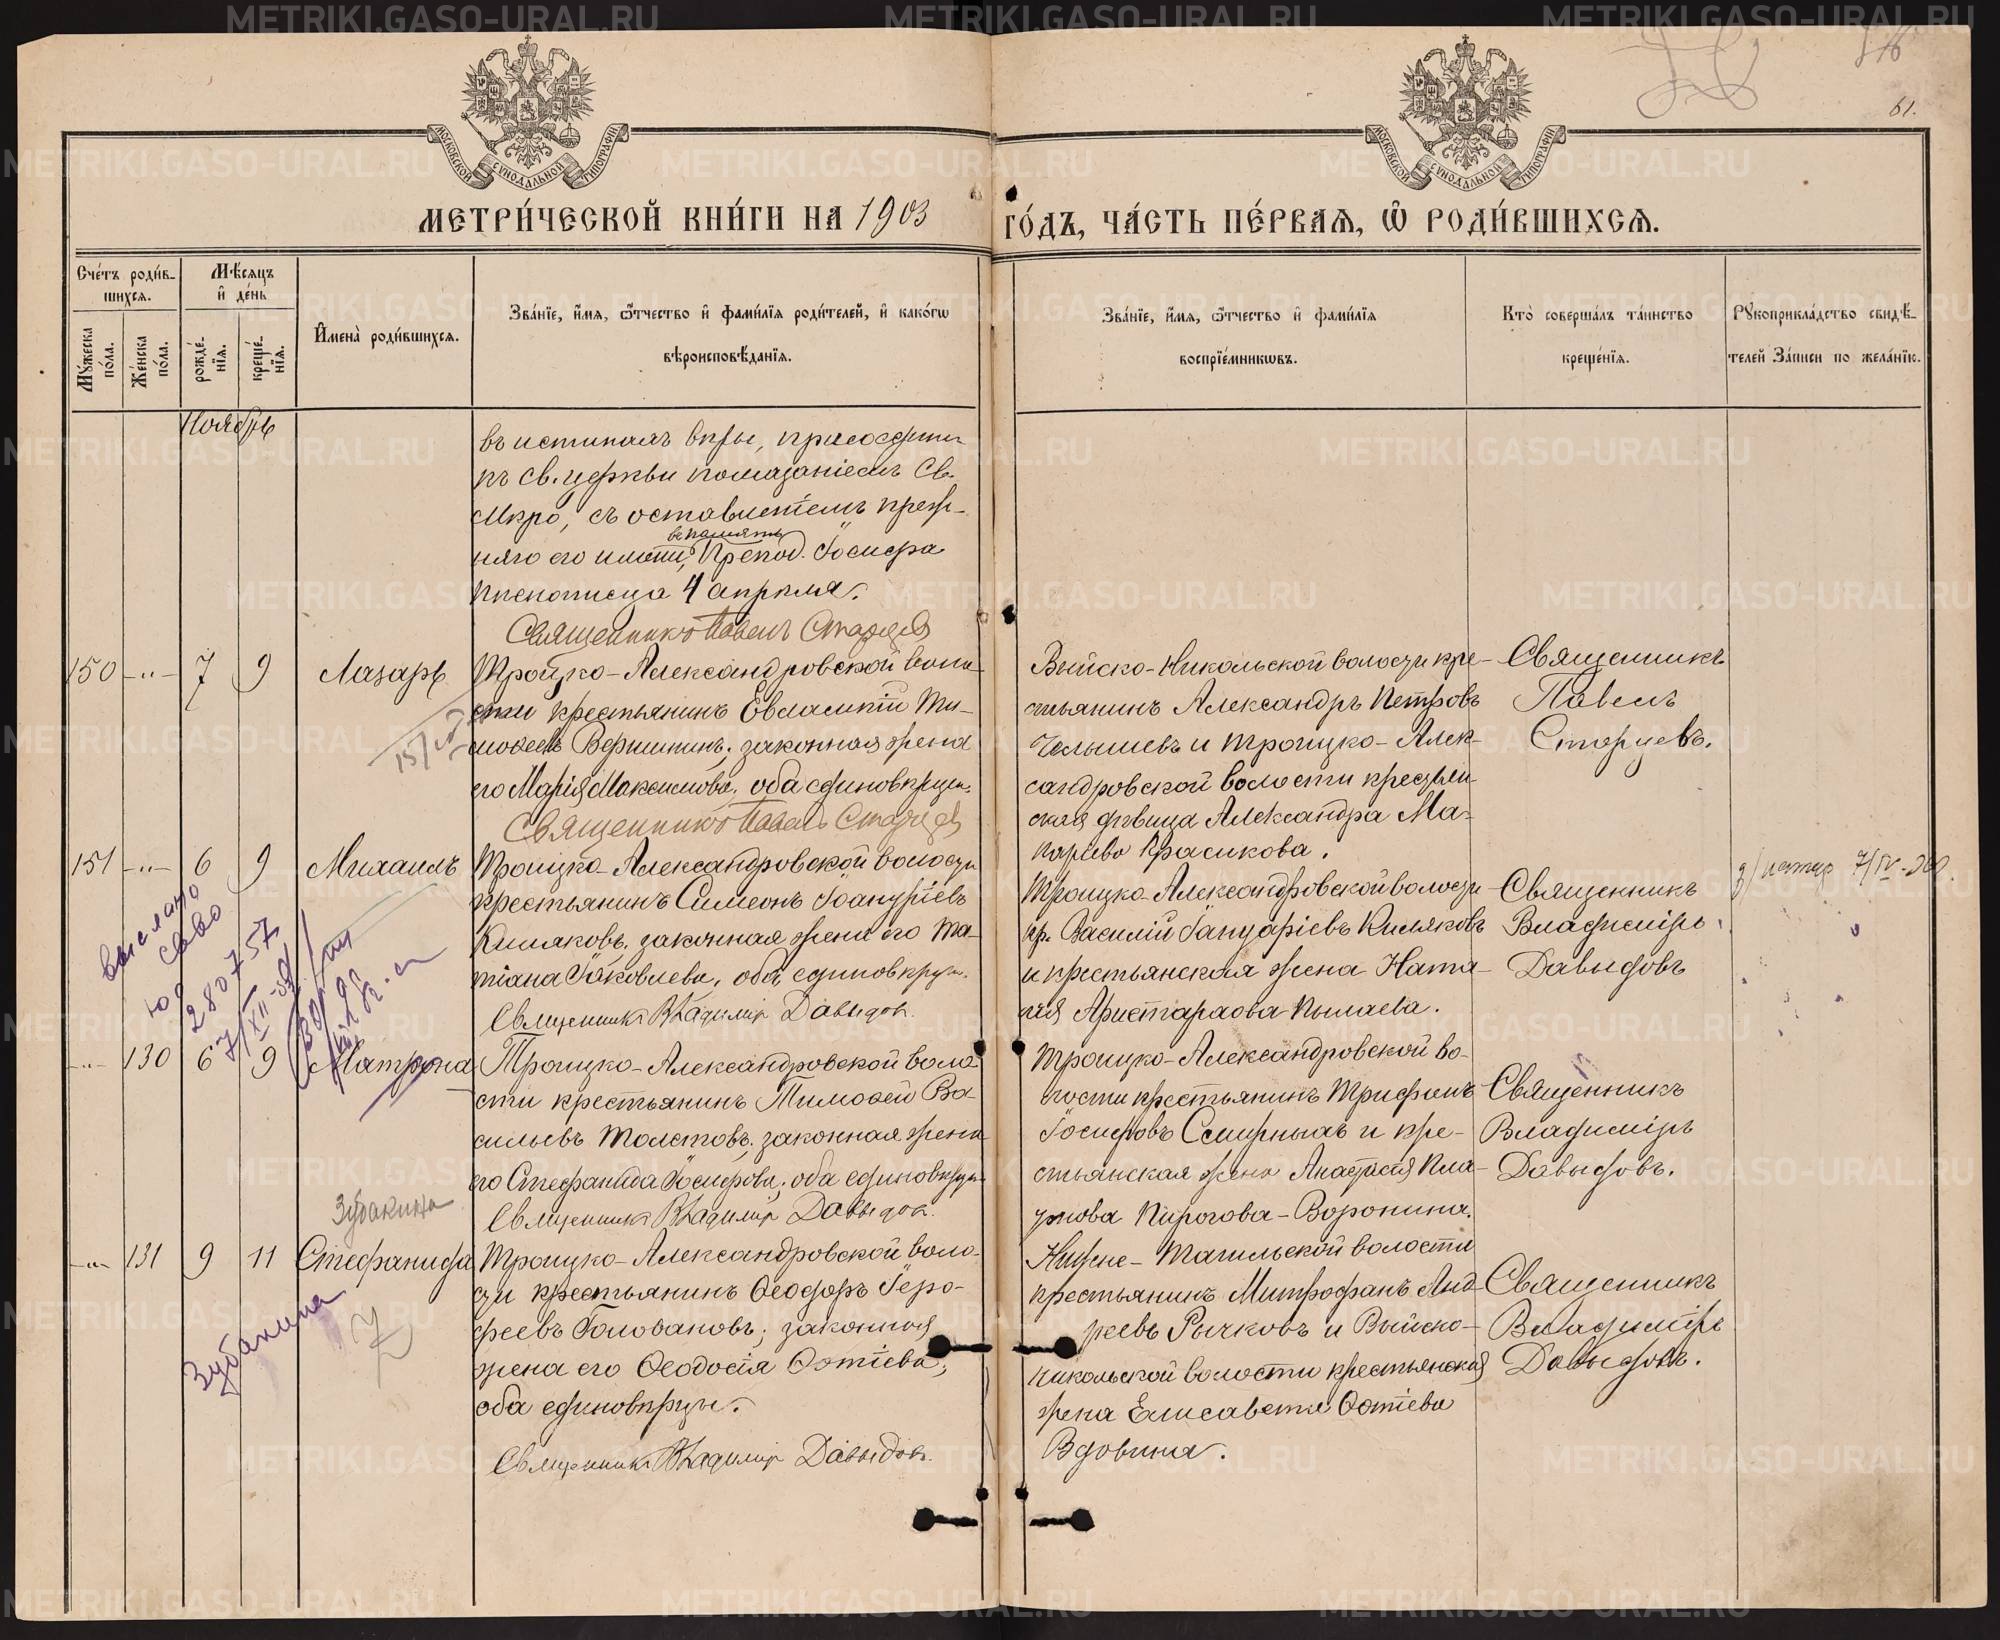 МЕТРИ́ЧЕСКОЙ КНИ́ГИ НА 1903 ГО́ДЪ, ЧА́СТЬ ПЕ́РВАЯ, Ѿ РОДИ́ВШИХСЯ.
61.
Сче́тъ роди́в-
шихся.
Мѣ́сяцъ
и҆ де́нь
Му́жеска
по́ла.
Же́нска
по́ла.
рожде́-
нїя.
креще́-
нїя.
И҆мена̀ роди́вшихся.
Зва́нїе, и҆́мя, ѻ҆́тчество и҆ фами́лїя роди́телей, и҆ како́гѡ
вѣроисповѣ́данїя.
Зва́нїе, и҆́мя, ѻ҆́тчество и҆ фами́лїя
воспрїе́мникѡвъ.
Кто̀ соверша́лъ та́инство
креще́нїя.
Рꙋкоприкла́дство свидѣ́-
телей за́писи по жела́нїю.
Ноябрь
въ истинахъ вѣры, присоедин.
къ св. церкви помазаніемъ Св.
Мѵро, съ оставленіемъ преж-
няго его имени, въ память Препод. Іосифа
Пѣснописца 4 апрѣля.
Священникъ Павелъ Старцевъ
150 -"- 7 9 Лазарь
Троицко-Александровской воло-
сти крестьянинъ Евлампій Ти-
мофеевъ Вершининъ, законная жена
его Марія Максимова, оба единоверцы.
Священникъ Павелъ Старцевъ
Выйско-Никольской волости кре-
стьянинъ Александръ Петровъ
Челышевъ и Троицко-Алек-
сандровской волости крестьян-
ская девица Александра Ма-
карьева Красикова.
Священникъ
Павелъ
Старцевъ.
151 -"- 6 9 Михаилъ
Троицко-Александровской волости
крестьянинъ Симеонъ Іоануріевъ
Кисляковъ, законная жена его Та-
тіана Іаковлева, оба единоверцы.
Священникъ Владиміръ Давыдовъ.
Троицко-Александровской волости
кр. Василій Іануаріевъ Кисляковъ
и крестьянская жена Ната-
лія Аристархова Пылаева.
Священникъ
Владиміръ
Давыдовъ
выслано
280757
-"- 130 6 9 Матрона
Троицко-Александровской воло-
сти крестьянинъ Тимофей Ва-
сильевъ Толстовъ, законная жена
его Стефанида Іосифова, оба единоверцы.
Священникъ Владиміръ Давыдовъ.
Троицко-Александровской во-
лости крестьянинъ Трифонъ
Іосифовъ Смирныхъ и кре-
стьянская жена Анастасія Кла-
Пирогова-Воронина.
Священникъ
Владиміръ
Давыдовъ.
Зубакина
-"- 131 9 11 Стефанида
Зубакина
Троицко-Александровской воло-
сти крестьянинъ Ѳеодоръ Іеро-
феевъ Головановъ; законная
жена его Ѳеодосія Фотіева;
оба единоверцы.
Священникъ Владиміръ Давыдовъ.
Нижне-Тагильской волости
крестьянинъ Митрофанъ Анд-
реевъ Рычковъ и Выйско-
Никольской волости крестьянская
жена Елисавета Фотіева
Вдовина.
Священникъ
Владиміръ
Давыдовъ.
METRIKI.GASO-URAL.RU